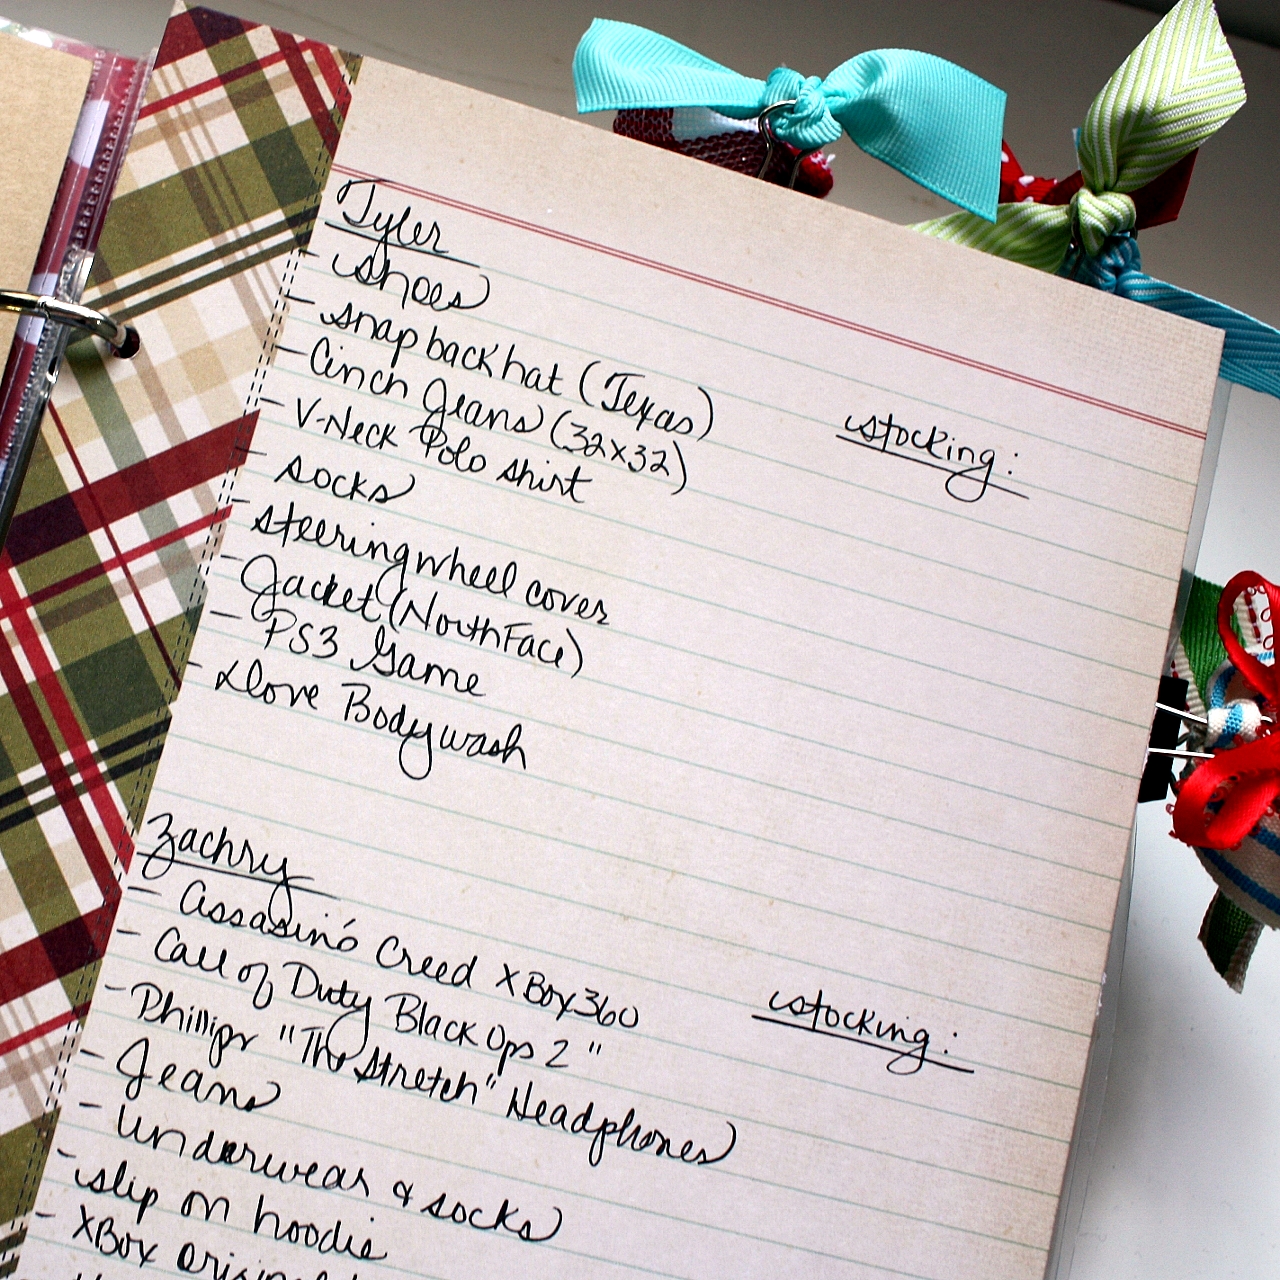 Tyler
- shoes
- snap back hat (Texas)
- Cinch Jeans (32x32)
stocking:
- V-Neck Polo shirt
- socks
- steering wheel cover
- Jacket (NorthFace)
- PS3 Game
- Dove Bodywash
Zachry
- Assasin's Creed XBox360
- Call of Duty Black Ops 2 "
stocking:
- Phillips "The Stretch" Headphones
- Jeans
- Underwear & socks
- slip on hoodie
- XBox original